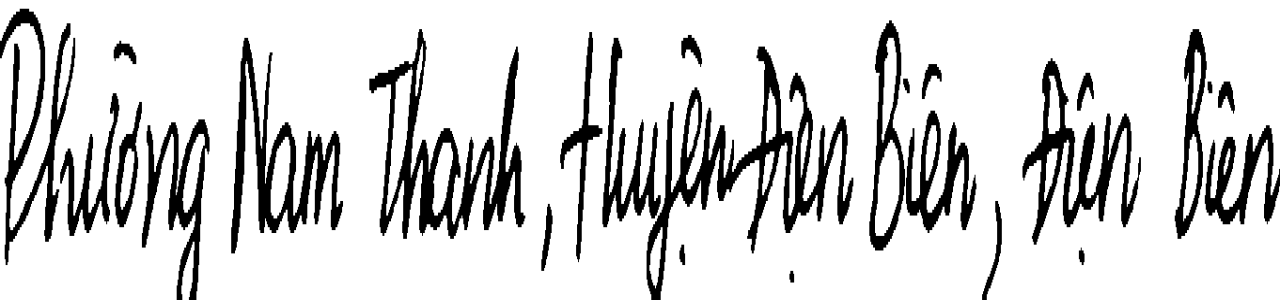 Phường Nam Thanh, Huyện Điện Biên, Điện Biên